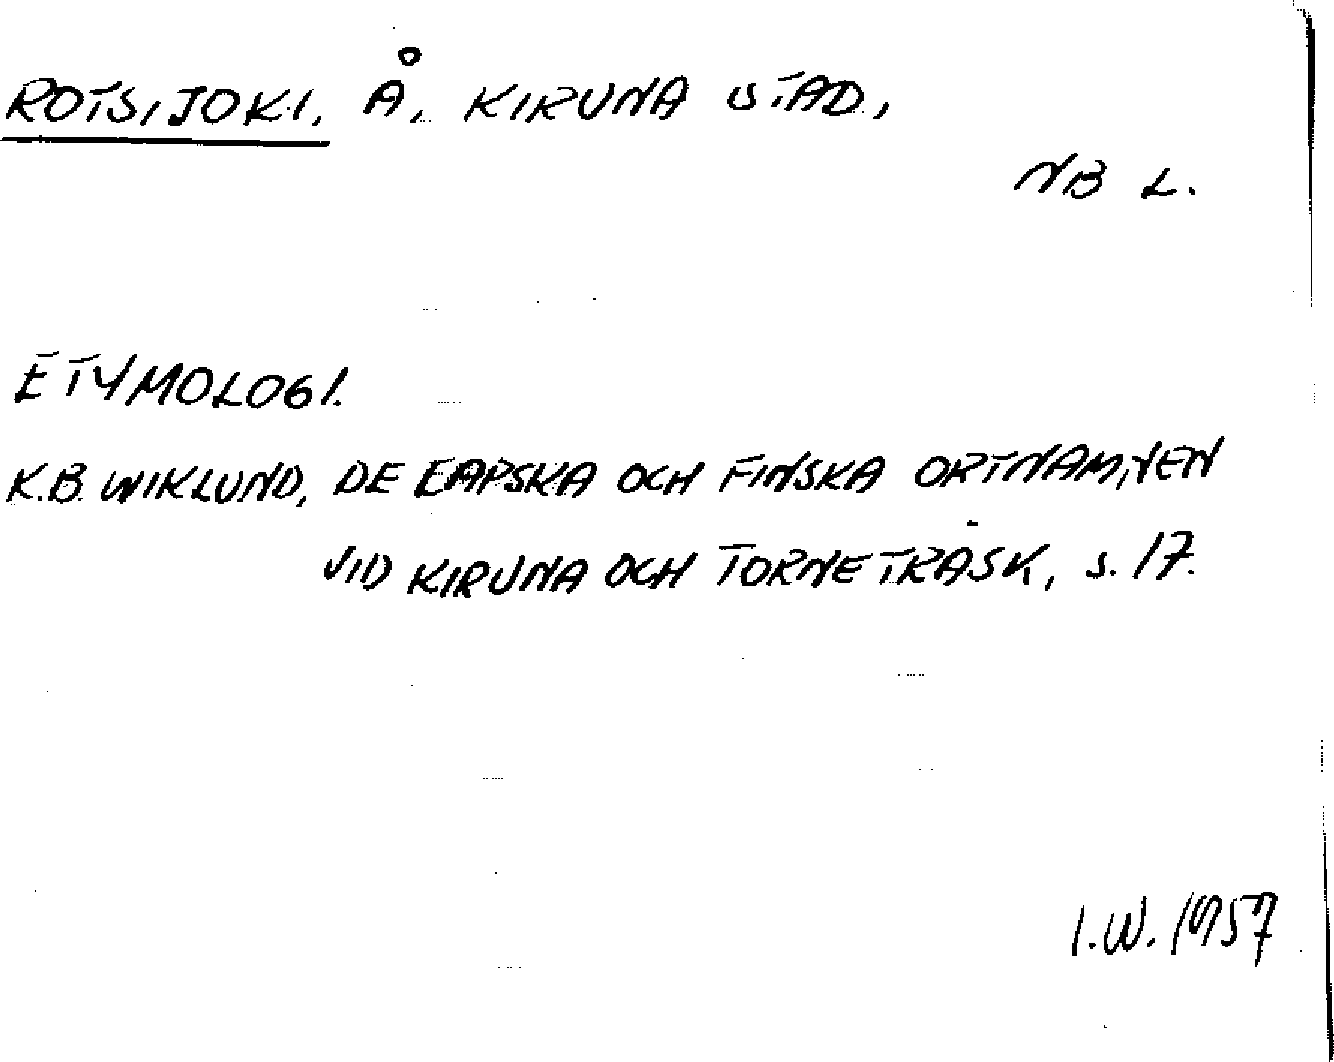 ROTSIJOKI, Å, KIRUNA STAD,
NB L.
ETYMOLOGI.
K.B. WIKLUND, DE LAPSKA OCH FINSKA ORTNAMNEN
VID KIRUNA OCH TORNETRÄSK, s. 17.
I.W. 1957